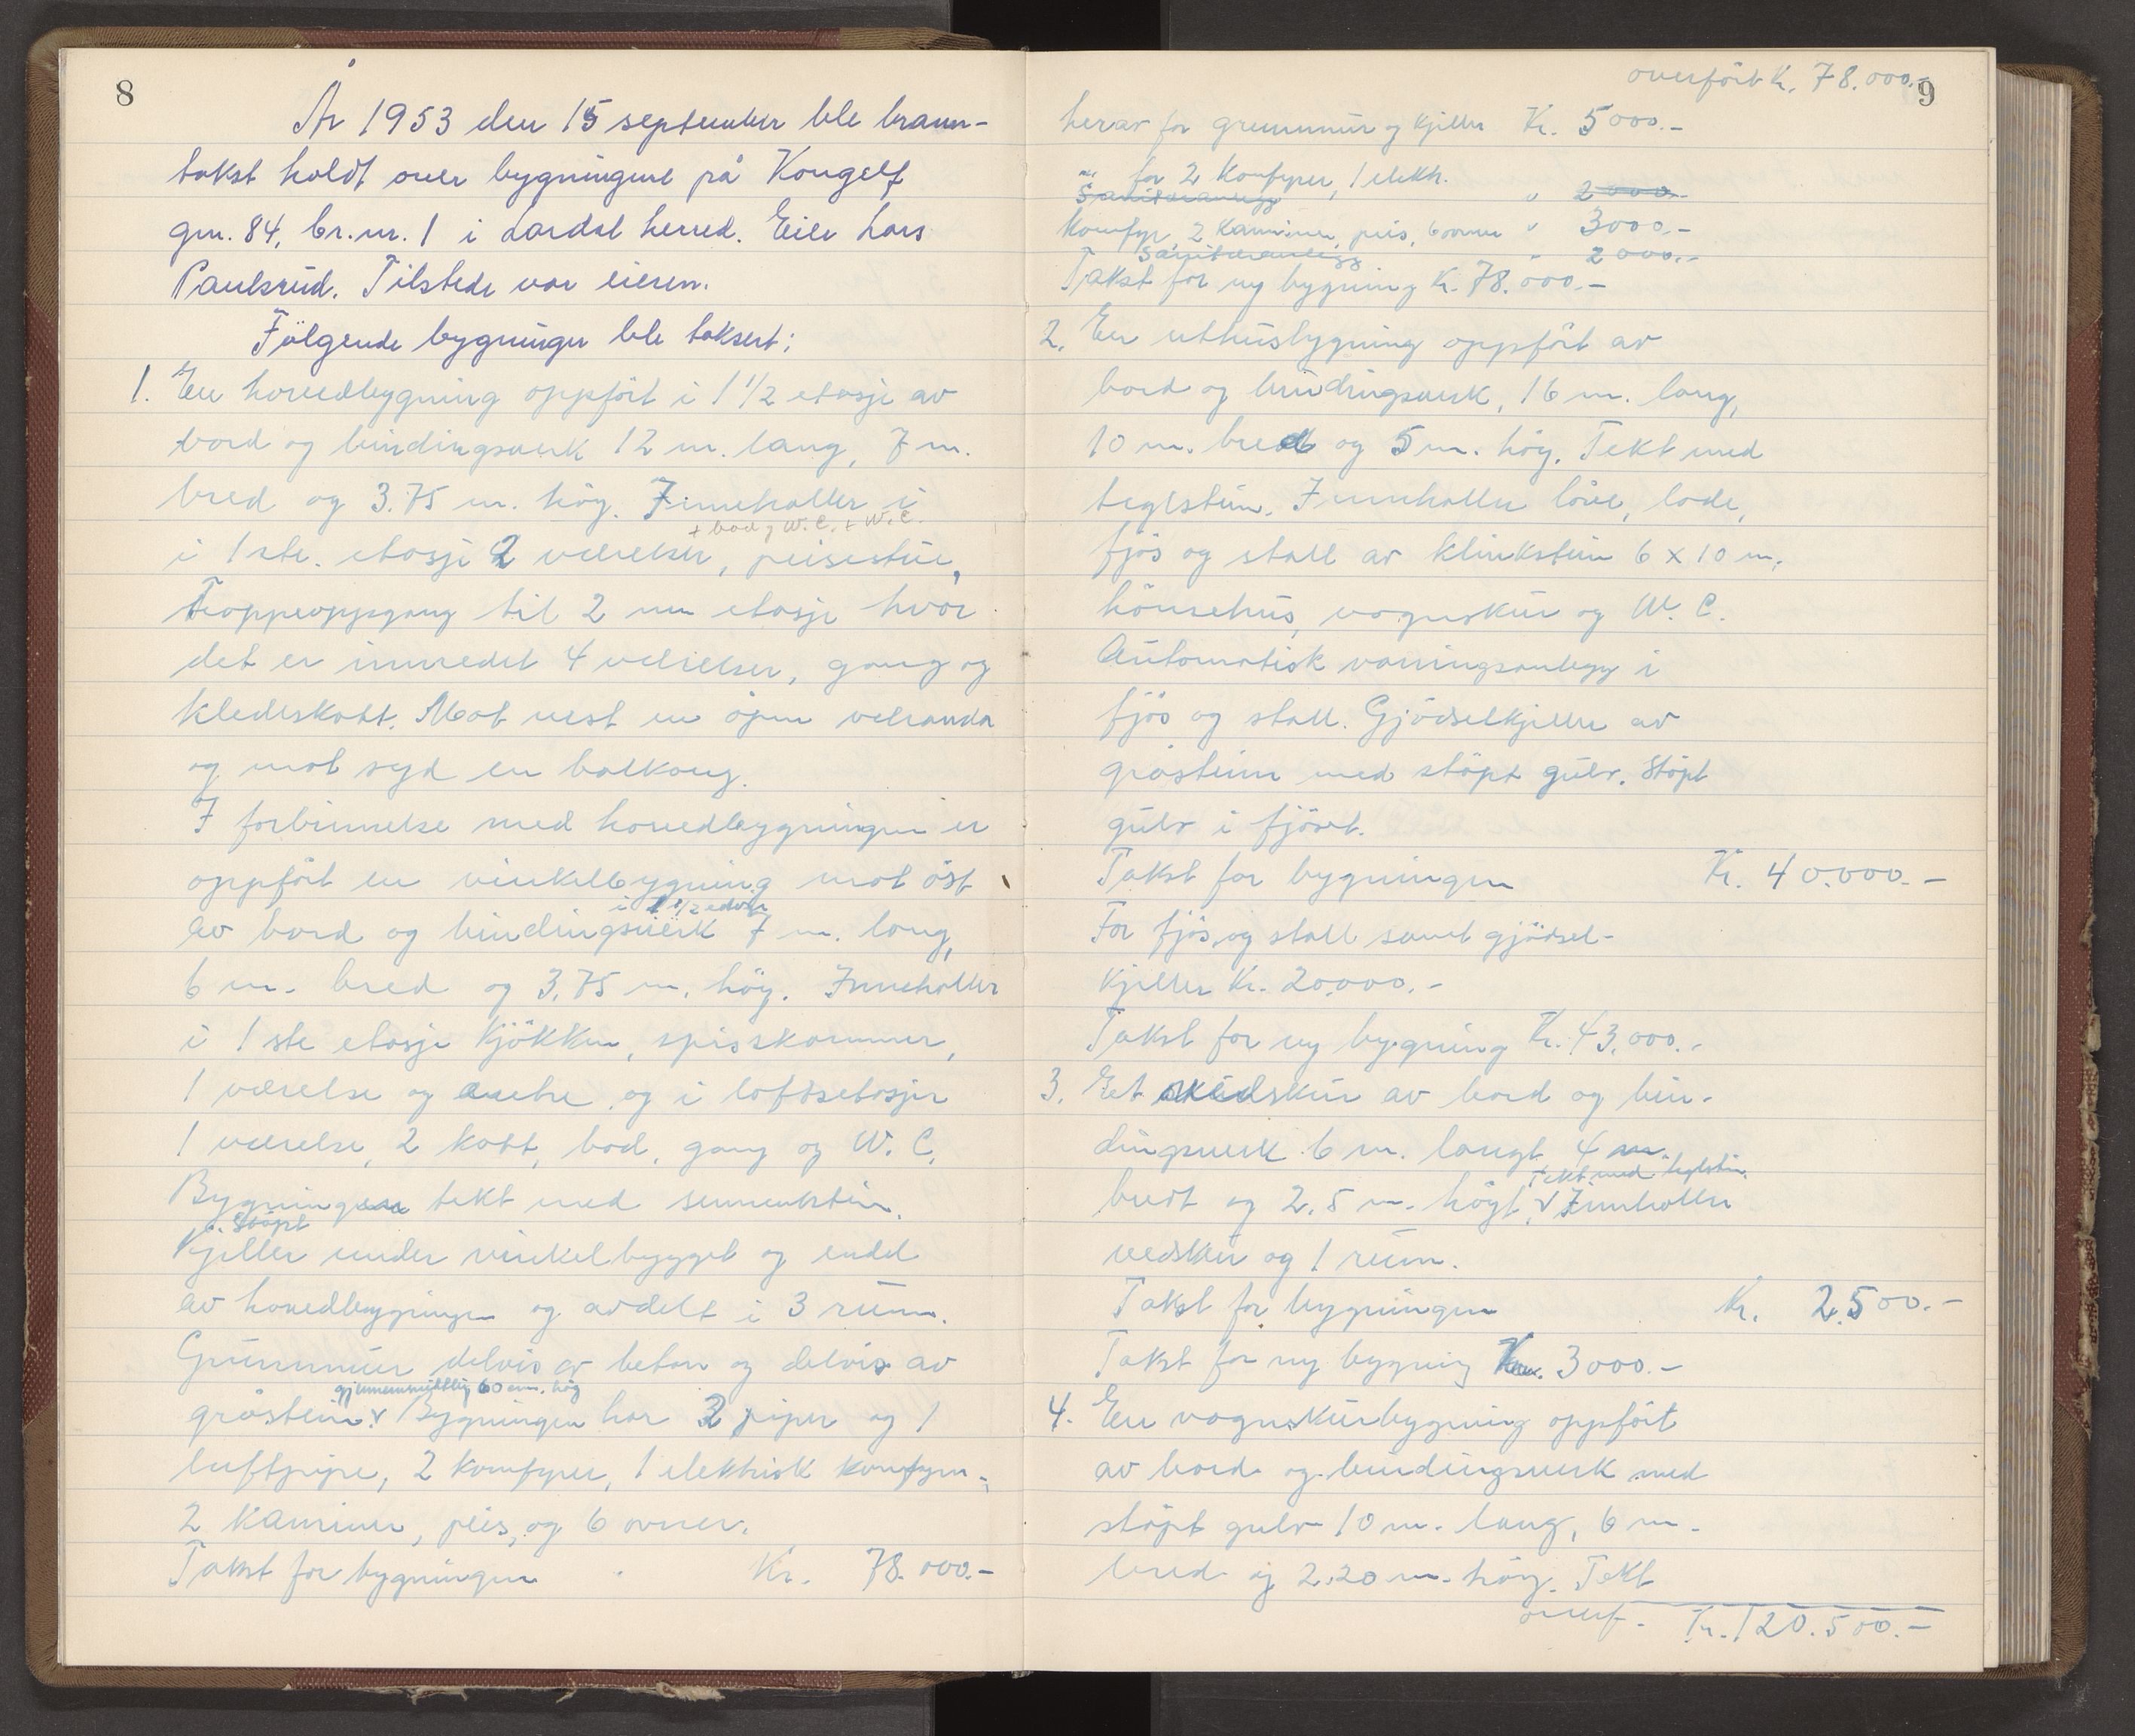 8
År 1953 den 15 september ble brann-
takst holdt over bygningene på Kongelf
gnr. 84, br.nr. 1 i Lardal herred. Eier Lars
Paulsrud. Tilstede var eieren.
Følgende bygninger ble taksert:
1. En hovedbygning oppført i 1 1/2 etasje av
bord og bindingsverk 12 m. lang, 7 m.
bred og 3.75 m. høg. Inneholler i
+ bad og W.C. + W.C.
i 1ste. etasje 2 værelser, peisestue,
Trappeoppgang til 2 nen etasje hvor
det er innredet 4 værelser, gang og
kledeskott. Mot vest en åpen veranda
og mot syd en balkong.
I forbinnelse med hovedbygningen er
oppført en vinkelbygning mot øst
i 1 1/2 etasje
av bord og bindingsverk 7 m. lang,
6 m. bred og 3,75 m. høg. Inneholler
i 1ste etasje kjøkken, spisskammer,
1 værelse og entre og i loftsetasjen
1 værelse, 2 kott, bod, gang og W.C.
Bygningene tekt med sementstein.
Støpt
Kjeller under vinkelbygget og endel
av hovedbygningen og avdelt i 3 rum.
Grunnmur delvis av beton og delvis av
gjennemsnittlig 60 cm. høg
gråstein. v Bygningen har 3 piper og 1
luftpipe, 2 komfyrer, 1 elektrisk komfyr,
2 kaminer, peis, og 6 ovner.
Takst for bygningen Kr. 78.000.-
overført Kr. 78.000.-
9
herav for grunnmur og kjeller Kr. 5000.-
" for 2 komfyrer, 1 elektr.
Sanitæranlegg " 2000.-
komfyr, 2 kaminer, peis, 6 ovner " 3000.-
Sanitæranlegg " 2000.-
Takst for ny bygning Kr. 78.000.-
2. En uthusbygning oppført av
bord og bindingsverk, 16 m. lang,
10 m. bred og 5 m. høg. Tekt med
teglstein. Inneholler låve, lade,
fjøs og stall av klinkstein 6 x 10 m,
hønsehus, vognskur og W.C.
Automatisk vanningsanlegg i
fjøs og stall. Gjødselkjeller av
gråstein med støpt gulv. Støpt
gulv i fjøset.
Takst for bygningen Kr. 40.000.-
For fjøs og stall samt gjødsel-
kjeller Kr. 20.000.-
Takst for ny bygning Kr. 43.000.-
3. Et vedskur av bord og bin-
dingsverk 6 m. langt 4 m.
Tekt med teglstein.
bredt og 2.5 m. høgt. v Inneholler
vedskur og 1 rum.
Takst for bygningen Kr. 2.500.-
Takst for ny bygning Kr. 3000.-
4. En vognskurbygning oppført
av bord og bindingsverk med
støpt gulv 10 m. lang, 6 m.
bred og 2.20 m. høg. Tekt
overf. Kr. 120.500.-